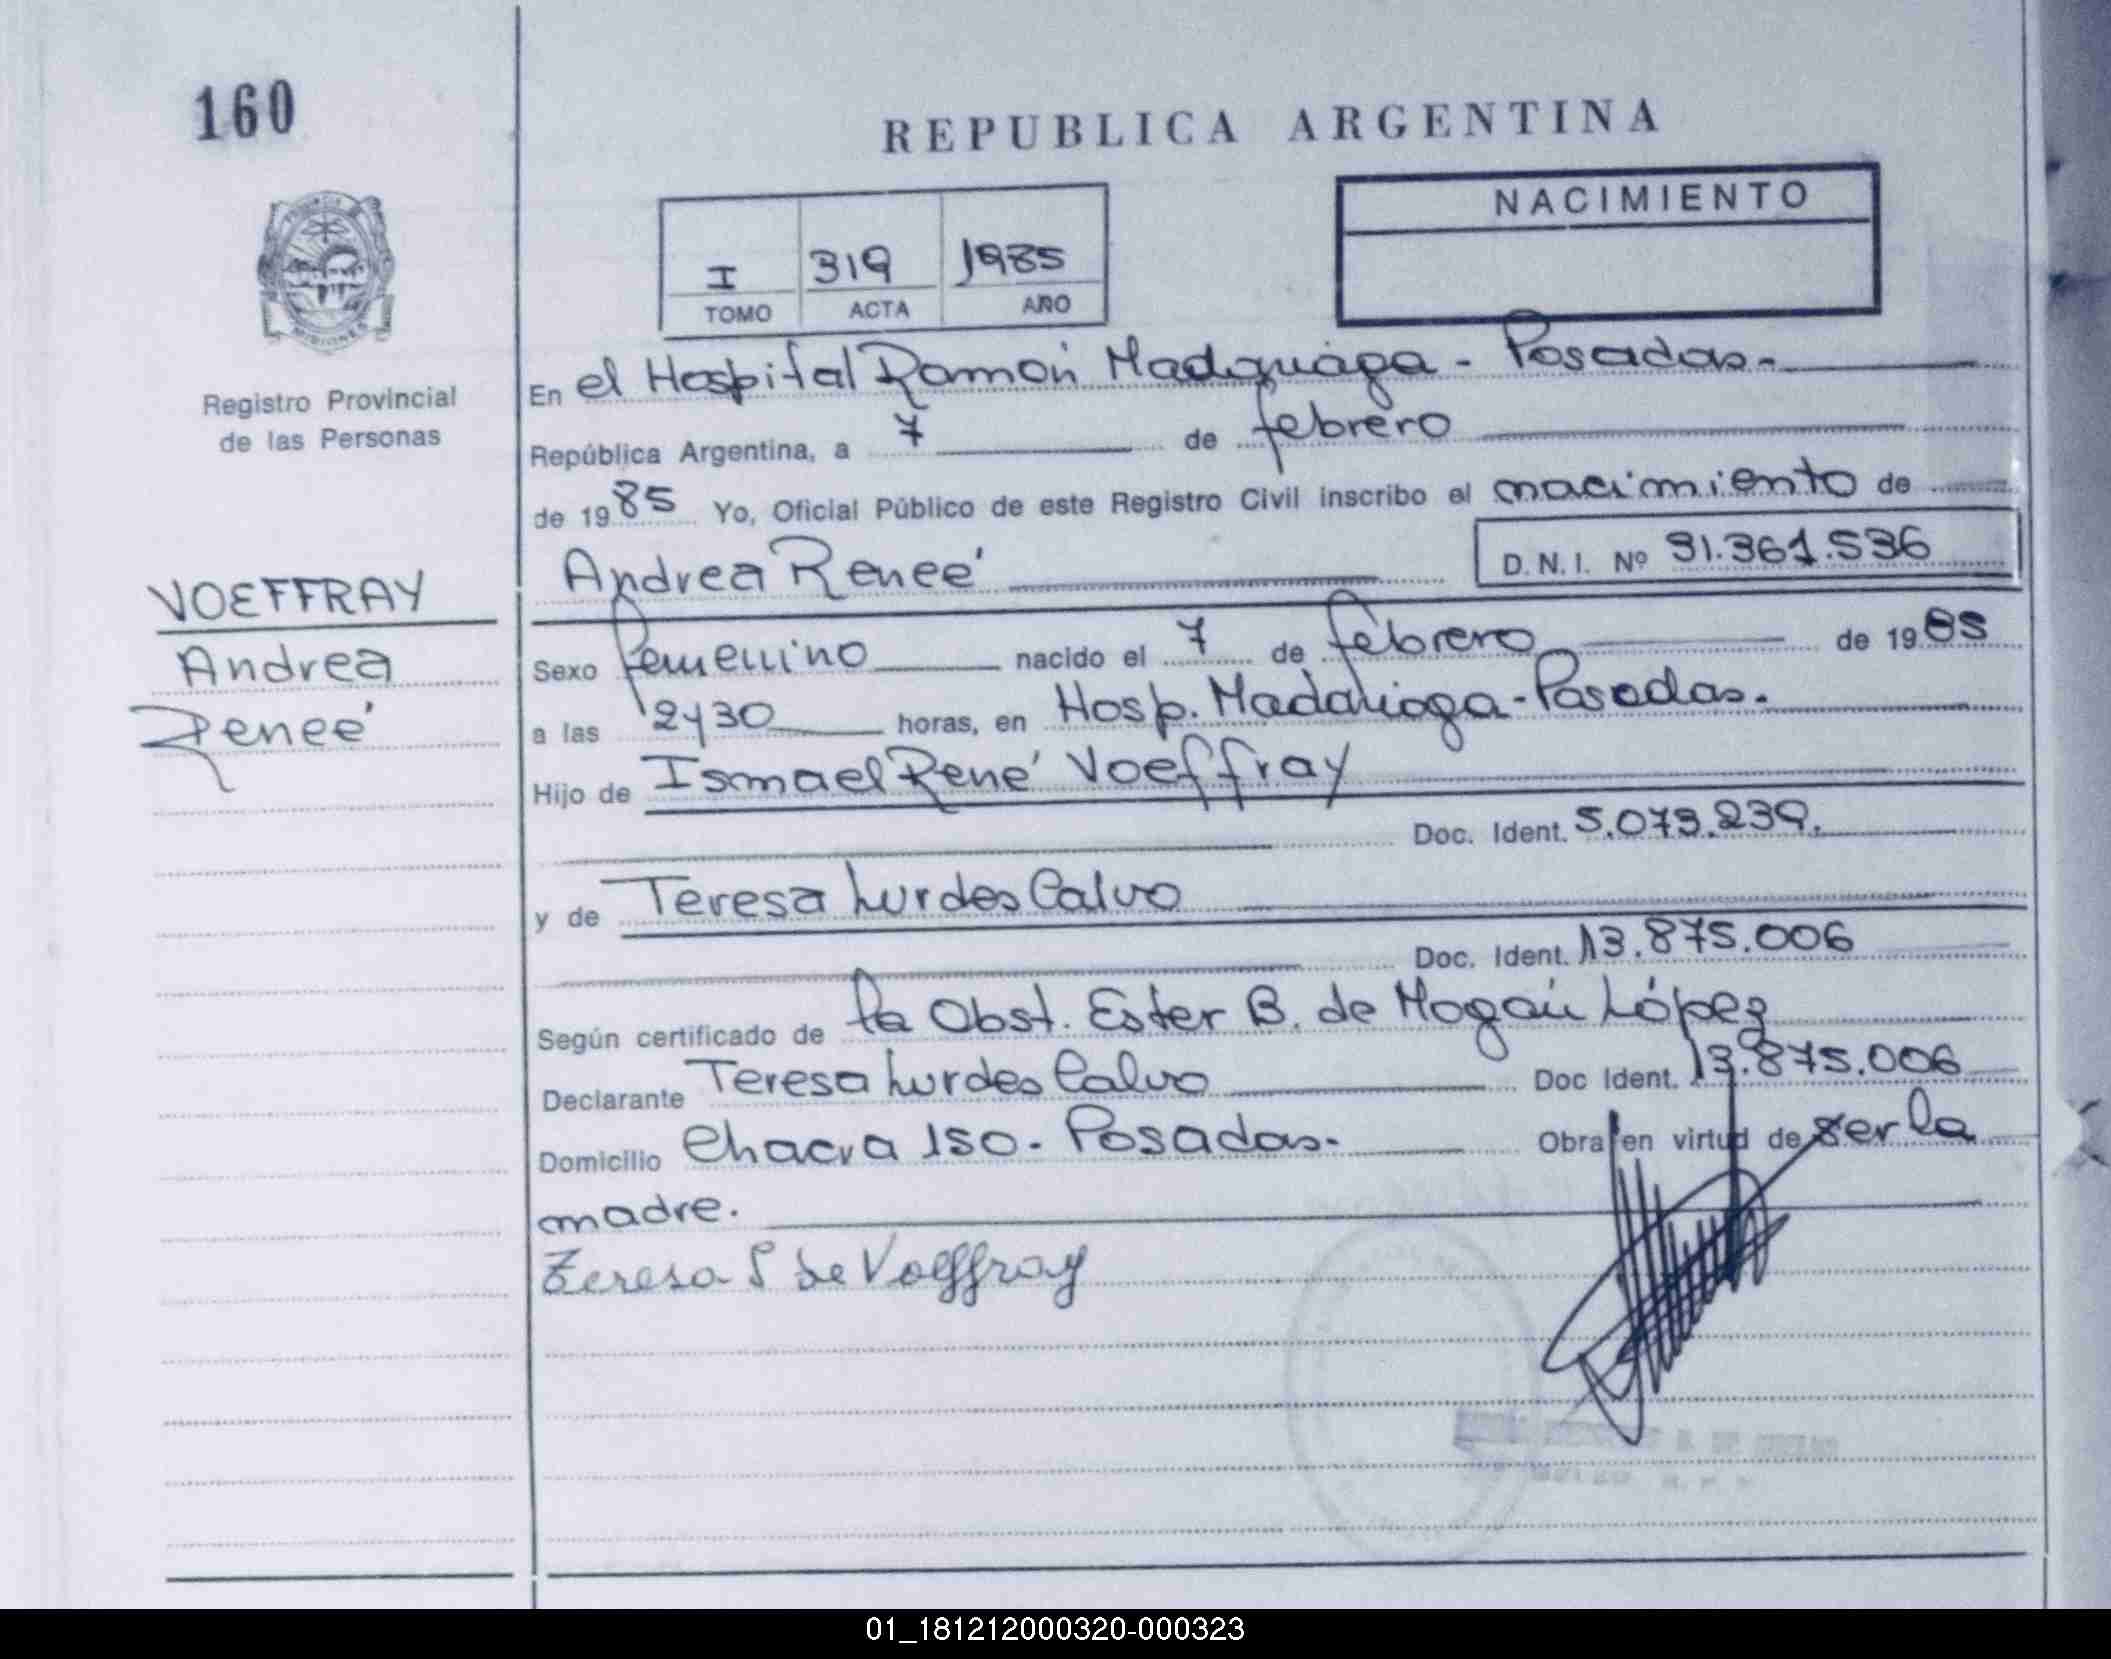 160
REPUBLICA ARGENTINA
NACIMIENTO
I 319 1985
TOMO ACTA AÑO
PROVINCIA DE
MISIONES
Registro Provincial
de las Personas
En el Hospital Ramón Madariaga - Posadas.
República Argentina, a 7 de febrero
de 1985 Yo, Oficial Público de este Registro Civil inscribo el nacimiento de
Andrea Reneé D.N.I. Nº 31.361.536
VOEFFRAY
Andrea
Reneé
Sexo femenino nacido el 7 de febrero de 1985
a las 12y30 horas, en Hosp. Madariaga - Posadas.
Hijo de Ismael René Voeffray
Doc. Ident. 5.073.239.
y de Teresa Lurdes Calvo
Doc. Ident. 13.875.006
Según certificado de la Obst. Ester B. de López
Declarante Teresa Lurdes Calvo Doc Ident. 13.875.006
Domicilio Chacra 150 - Posadas - Obra en virtud de ser la
madre.
Teresa de Voeffray
01_181212000320-000323